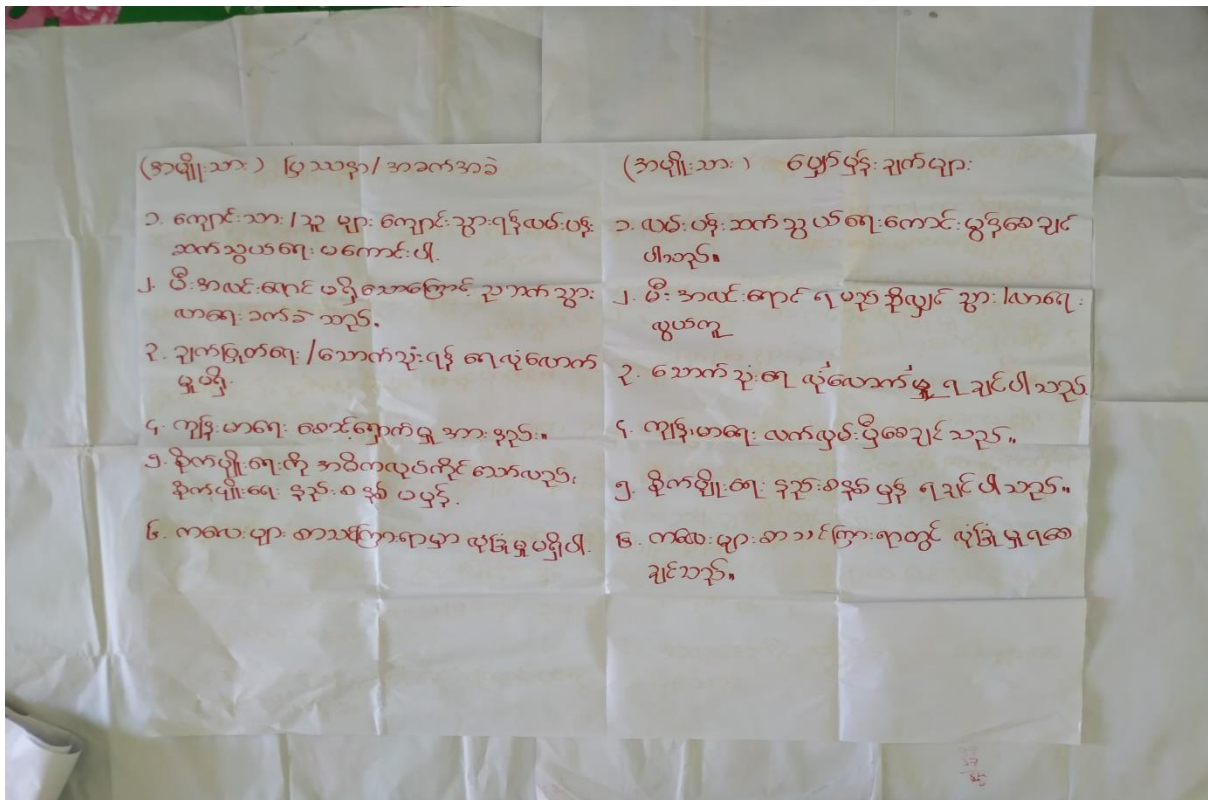 (အမျိုးသား) ပြဿနာ/အခက်အခဲ
၁. ကျောင်းသား/သူ များ ကျောင်းသွားရန်လမ်းပန်း
ဆက်သွယ်ရေး မကောင်းပါ.
၂. မီးအလင်းရောင် မရှိသောကြောင့် ညဘက် သွား
လာရေး ခက်ခဲ သည်.
၃. ချက်ပြုတ်ရေး/သောက်သုံးရန် ရေလုံလောက်
မှုမရှိ.
၄. ကျန်းမာရေး စောင့်ရှောက်မှု အားနည်း။
၅. စိုက်ပျိုးရေးကို အဓိကလုပ်ကိုင်သော်လည်း
စိုက်ပျိုးရေး နည်းစနစ် မမှန်.
၆. ကလေးများ စာသင်ကြားရာမှာ လုံခြုံမှုမရှိပါ.
(အမျိုးသား) မျှော်မှန်းချက်များ
၁. လမ်းပန်းဆက်သွယ်ရေးကောင်းမွန်စေချင်
ပါသည်။
၂. မီးအလင်းရောင် ရမည်ဆိုလျှင် သွား/လာရေး
လွယ်ကူ
၃. သောက်သုံးရေ လုံလောက်မှု ရချင်ပါသည်
၄. ကျန်းမာရေး လက်လှမ်းမှီစေချင်သည်။
၅. စိုက်ပျိုးရေး နည်းစနစ်မှန် ရချင်ပါသည်။
၆. ကလေးများစာသင်ကြားရာတွင် လုံခြုံမှုရစေ
ချင်သည်။